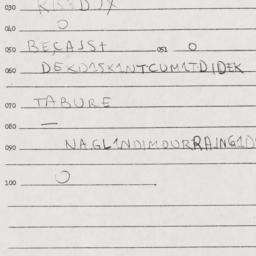 030
040 O
050 BECAJST 051 O
060 DEXD1SK1NTCUM1TDIDEK
070 TABURE
080 —
090 NAGL1NDIMOURRAJNG1D
100 O